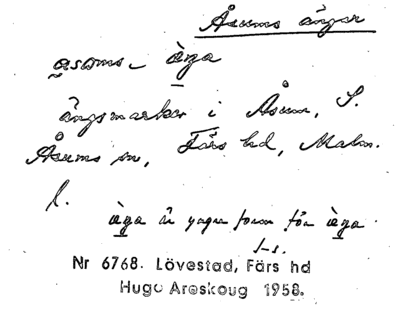 Åsums ängar
asoms- äŋa
ängsmarker i Åsum, S.
Åsums sn, Färs hd, Malm.
l.
äŋa är yngre form för äŋa.
Nr 6768. Lövestad, Färs hd
Hugo Areskoug 1958.